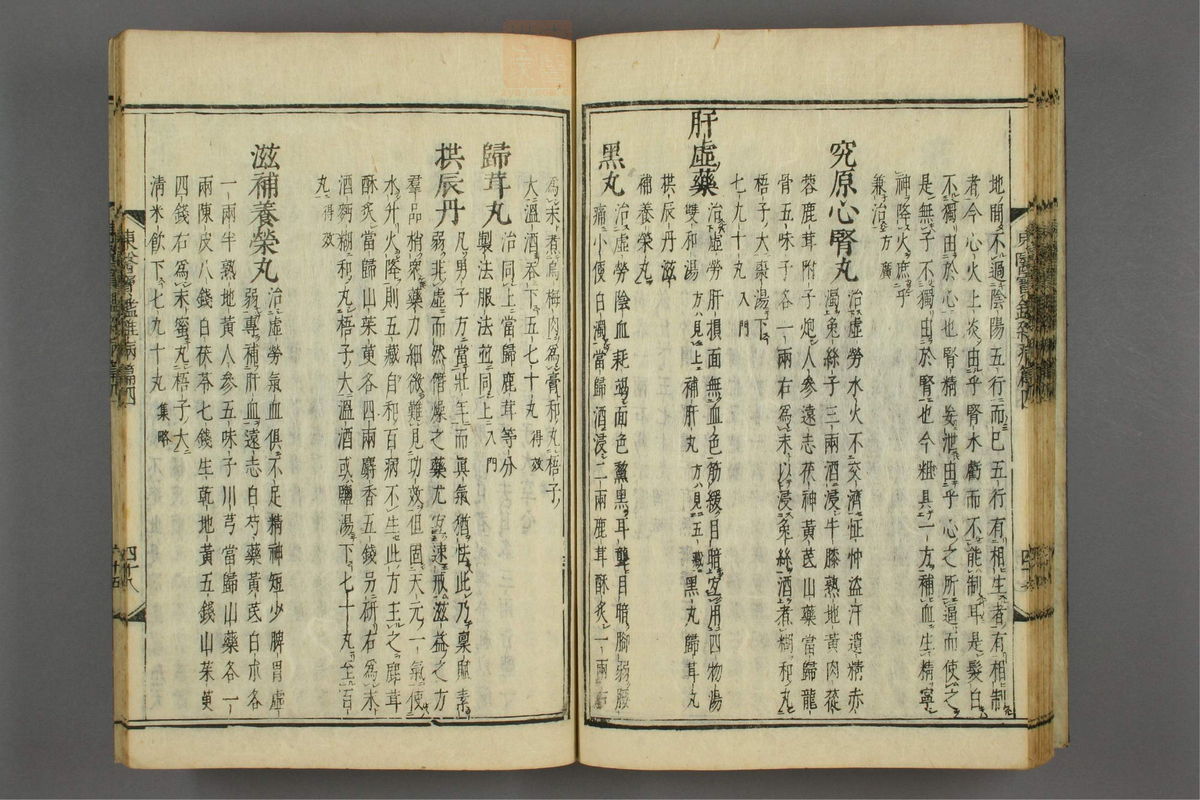 地間不過陰陽五行而已五行有相生者有相制
者今心火上炎由乎腎水虧而不能制耳是髮白
不獨由於心也腎精妄泄由乎心之所逼而使之
是無子不獨由於腎也今粗具一方補血生精寧
神降火庶乎
兼治方廣
究原心腎丸
治虛勞水火不交濟怔忡盜汗遺精赤
濁兔絲子三兩酒浸牛膝熟地黃肉蓯
蓉鹿茸附子炮人參遠志茯神黃芪山藥當歸龍
骨五味子各一兩右爲末以浸兔絲酒煮糊和丸
梧子大棗湯下
七九十丸入門
肝虛藥
治虛勞肝損面無血色筋緩目暗宜用四物湯
雙和湯方見上補肝丸方見五藏黑丸歸茸丸
拱辰丹滋
補養榮丸
黑丸
治虛勞陰血耗竭面色黧黑耳聾目暗脚弱腰
痛小便白濁當歸酒浸二兩鹿茸酥炙一兩右
爲末煮烏梅肉爲膏和丸梧子
大溫酒吞下五七十丸得效
歸茸丸
治同上當歸鹿茸等分
製法服法並同上入門
拱辰丹
凡男子方當壯年而眞氣猶怯此乃稟賦素
弱非虛而然僭燥之藥尤宜速戒滋益之方
羣品稍衆藥力細微難見功效但固天元一氣使
水升火降則五藏自和百病不生此方主之鹿茸
酥炙當歸山茱萸各四兩麝香五錢另研右爲末
酒麪糊和丸梧子大溫酒或鹽湯下七十丸至百
丸得效
滋補養榮丸
治虛勞氣血俱不足精神短少脾胃虛
弱專補肝血遠志白芍藥黃芪白朮各
一兩半熟地黃人參五味子川芎當歸山藥各一
兩陳皮八錢白茯苓七錢生乾地黃五錢山茱萸
四錢右爲末蜜丸梧子大
淸米飮下七九十丸集略
東醫寶鑑雜病篇四